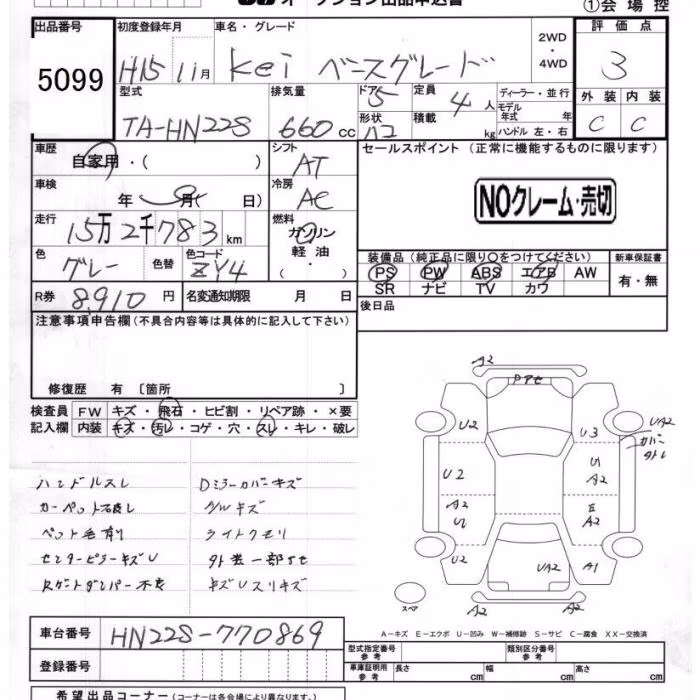 オークション出品申込書
①会場控
出品番号 5099
初度登録年月 H15 11月
車名・グレード Kei ベースグレード
2WD・4WD
評価点 3
型式 TA-HN22S
排気量 660cc
ドア 5
形状 ハコ
定員 4人
積載 kg
ディーラー・並行
モデル年式 年
ハンドル 左・右
外装 内装
C C
車歴 自家用・( )
シフト AT
セールスポイント (正常に機能するものに限ります)
車検 年 月( 日)
冷房 AC
NOクレーム・売切
走行 15万2千783km
燃料 ガソリン 軽油 ( ・ )
色 グレー 色替 色コード ZY4
装備品 (純正品に限り○をつけてください)
新車保証書
PS PW ABS エアB AW
SR ナビ TV カワ
有・無
R券 8,910円
名変通知期限 月 日
後日品
注意事項申告欄 (不具合内容等は具体的に記入して下さい)
修復歴 有 〔箇所 〕
検査員記入欄
FW キズ・飛石・ヒビ割・リペア跡・×要
内装 キズ・汚レ・コゲ・穴・スレ・キレ・破レ
ハンドルスレ Dミラーカバーキズ
カーペット汚レ A/Wキズ
ペット毛有 ライトクモリ
センターピラーキズU 外装一部サビ
Rゲートダンパー不良 キズUスリキズ
A2
Pアセ
U2 U3 UA2 カバー外レ
U2 U1 A2
A2 U2 E A2
U2 UA2 A1
スペア A2 A2
A-キズ E-エクボ U-凹み W-補修跡 S-サビ C-腐食 XX-交換済
車台番号 HN22S-770869
登録番号
型式指定番号 参考
類別区分番号 参考
車庫証明用 参考 長さ cm 幅 cm 高さ cm
希望出品コーナー (コーナーは各会場により異なります。)